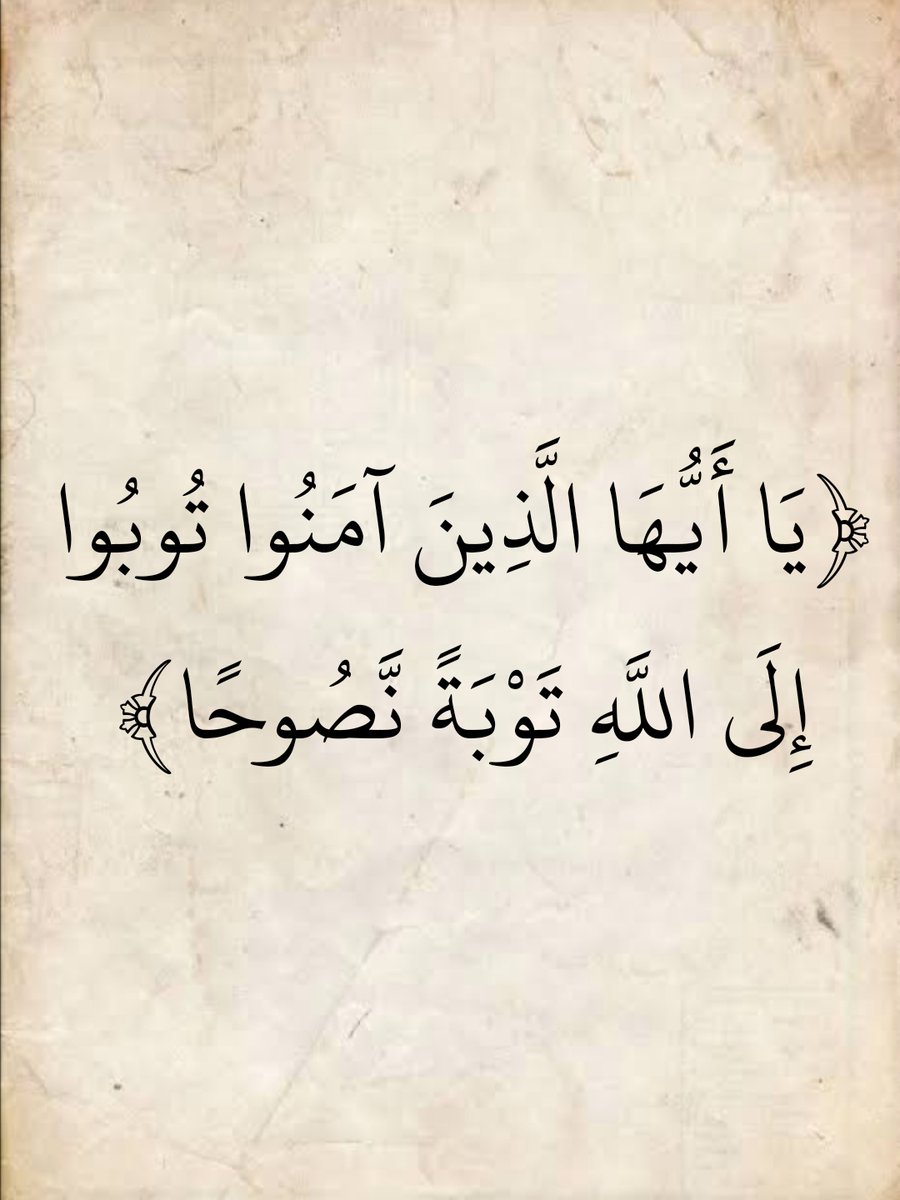 ﴿يَا أَيُّهَا الَّذِينَ آمَنُوا تُوبُوا
إِلَى اللَّهِ تَوْبَةً نَّصُوحًا﴾